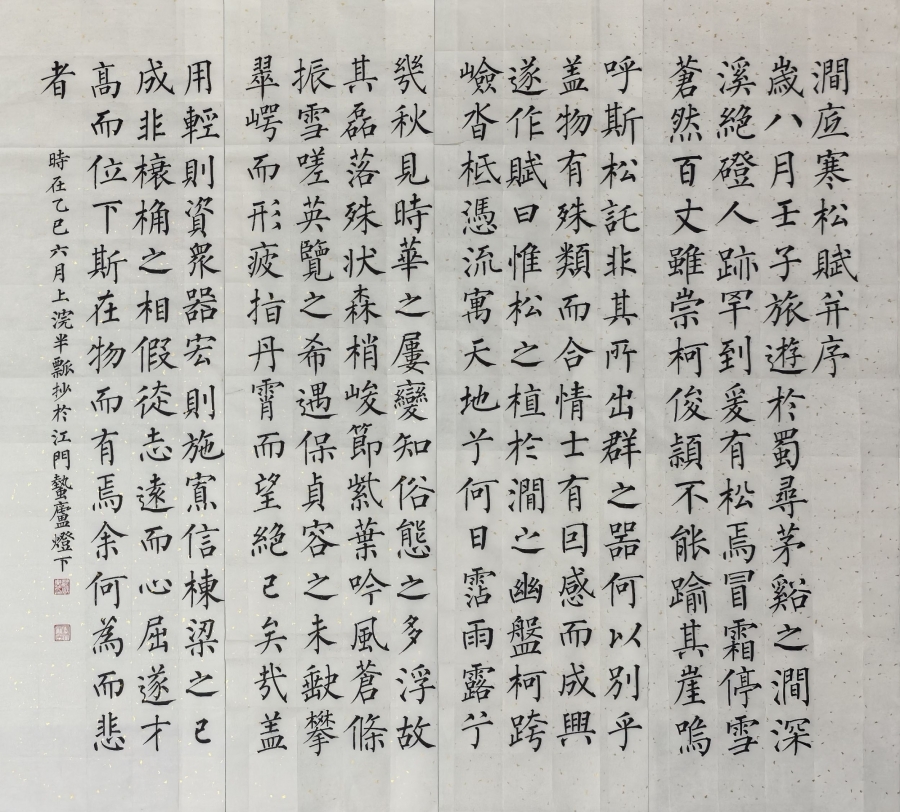 澗底寒松賦并序
歲八月壬子旅遊於蜀尋茅谿之澗深
溪絕磴人跡罕到爰有松焉冒霜停雪
蒼然百丈雖崇柯俊穎不能踰其崖嗚
呼斯松託非其所出群之器何以別乎
盖物有殊類而合情士有因感而成興
遂作賦曰惟松之植於澗之幽盤柯跨
嶮沓柢憑流寓天地兮何日霑雨露兮
幾秋見時華之屢變知俗態之多浮故
其磊落殊状森梢峻節紫葉吟風蒼條
振雪嗟英覽之希遇保貞容之未缺攀
翠崿而形疲指丹霄而望絕已矣哉盖
用輕則資衆器宏則施寡信棟梁之已
成非榱桷之相假徒志遠而心屈遂才
高而位下斯在物而有焉余何為而悲
者
時在乙巳六月上浣半瓢抄於江門蟄廬燈下